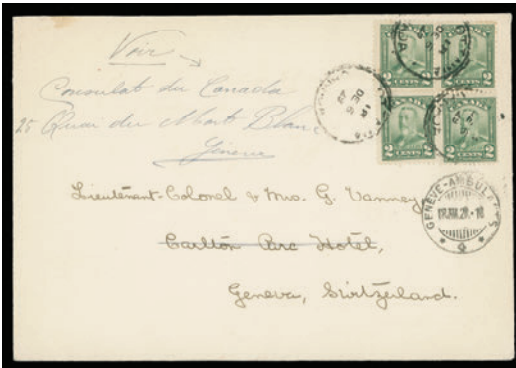 Voir
Consulat du Canada
25 Quai du Mont Blanc
Genève
Lieutenant-Colonel & Mrs. G. Vanney
Carlton Parc Hotel,
Geneva, Switzerland.
2 2
CENTS CENTS
2 2
2 2
CENTS CENTS
GENÈVE-AMBULANTS